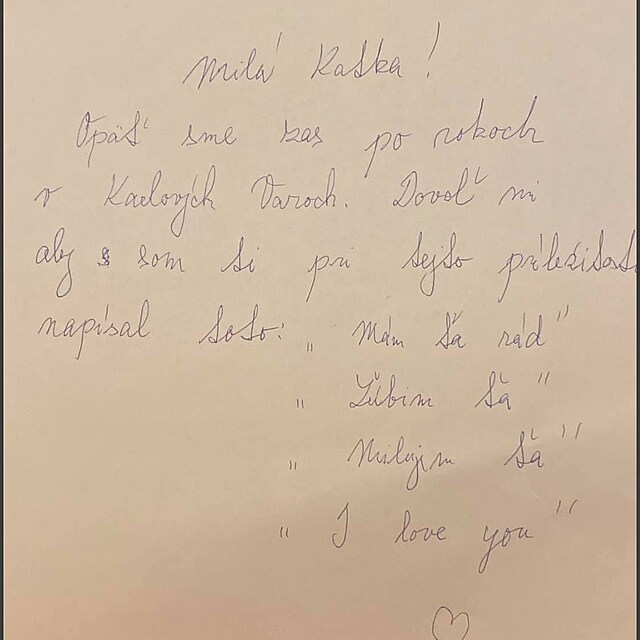 Milá Katka!
Opäť sme zas po rokoch
v Karlových Varoch. Dovoľ mi
aby som ti pri tejto príležitosti
napísal toto: „Mám ťa rád"
„Ľúbim ťa"
„Milujem ťa"
„I love you"